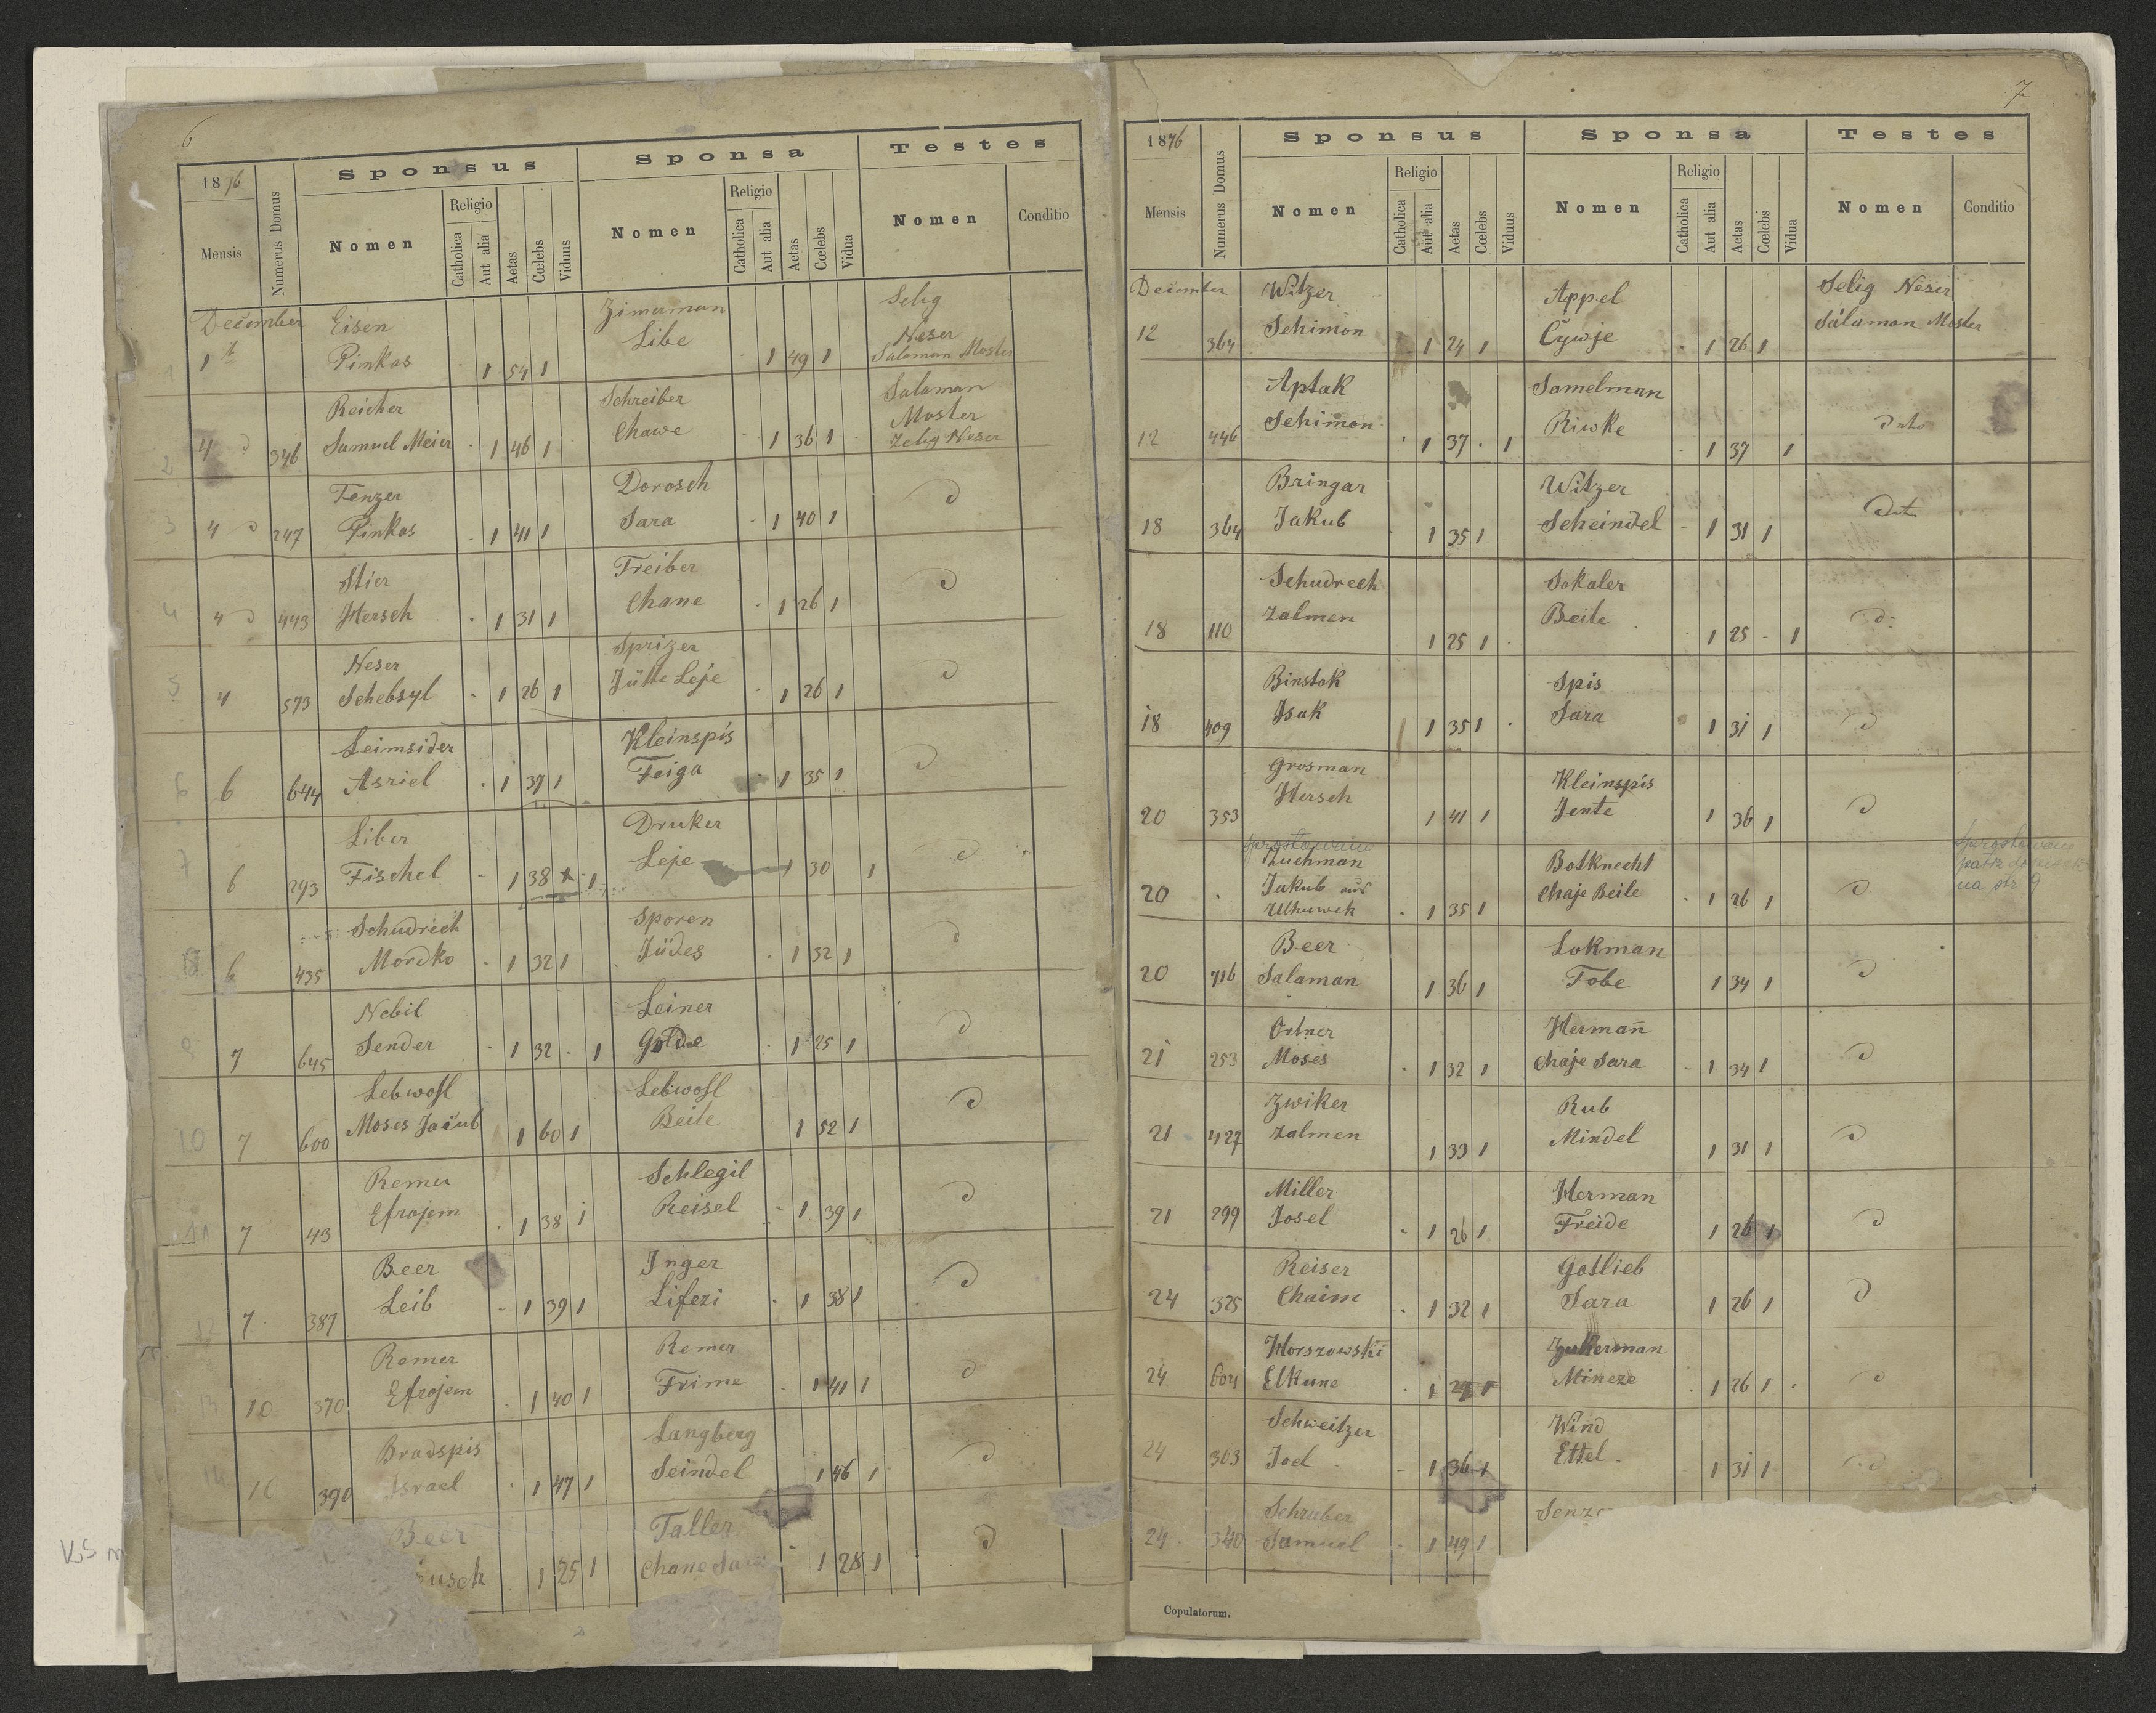 6
Sponsus Sponsa Testes
1876 Mensis Numerus Domus Nomen Religio Catholica Aut alia Aetas Cœlebs Viduus Nomen Religio Catholica Aut alia Aetas Cœlebs Vidua Nomen Conditio
December Eisen Zimerman Selig
Neser
1 1 Pinkas 1 54 1 Libe 1 49 1 Salaman Moster
Reicher Schreiber Salaman
Moster
2 4 346 Samuel Meier 1 46 1 Chawe 1 36 1 Zelig Neser
Tenzer Dorosch
3 4 247 Pinkas 1 41 1 Sara 1 40 1
Stier Treiber
4 4 443 Hersch 1 31 1 Chane 1 26 1
Neser Sprizer
5 4 573 Schebsyl 1 26 1 Jütte Leje 1 26 1
Leimsider Kleinspis
6 6 644 Asriel 1 37 1 Feiga 1 35 1
Liber Druker
7 6 293 Fischel 1 38 1 Leje 1 30 1
Schudrech Sporen
6 435 Mordko 1 32 1 Jüdes 1 52 1
Nebil Leiner
9 7 645 Sender 1 32 1 Golde 1 25 1
Lebwosl Lebwosl
10 7 600 Moses Jacub 1 60 1 Beile 1 52 1
Remer Schlegil
11 7 43 Efrojem 1 38 1 Reisel 1 39 1
Beer Inger
12 7 387 Leib 1 39 1 Lifezi 1 38 1
Remer Remer
13 10 370 Efrojem 1 40 1 Frime 1 41 1
Bradspis Langberg
14 10 390 Israel 1 47 1 Seindel 1 46 1
Beer Taller
usch 1 25 1 Chane Sara 1 28 1
7
Sponsus Sponsa Testes
1876 Mensis Numerus Domus Nomen Religio Catholica Aut alia Aetas Cœlebs Viduus Nomen Religio Catholica Aut alia Aetas Cœlebs Vidua Nomen Conditio
December Witzer Appel Selig Neser
12 364 Schimon 1 24 1 Cywje 1 26 1 Salaman Moster
Aptak Samelman
12 446 Schimon 1 37 1 Riwke 1 37 1 dto
Bringar Witzer
18 364 Jakub 1 35 1 Scheindel 1 31 1 Dt
Schudrech Sokaler
18 110 Zalmen 1 25 1 Beile 1 25 1 d:
Binstok Spis
18 409 Isak 1 35 1 Sara 1 31 1
Grosman Kleinspis
20 353 Hersch 1 41 1 Jente 1 36 1
sprostowano sprostowano
Zuchman Botknecht
20 Jakub aus Chaje Beile 1 26 1 na str 9
Uhuwek 1 35 1
Beer Lokman
20 716 Salaman 1 36 1 Tobe 1 34 1
Ortner Hermañ
21 253 Moses 1 32 1 Chaje Sara 1 34 1
Zwiker Rub
21 427 Zalmen 1 33 1 Mindel 1 31 1
Miller Herman
21 299 Josel 1 26 1 Freide 1 26 1
Reiser Gotlieb
24 325 Chaim 1 32 1 Sara 1 26 1
Horszowski Zukerman
24 604 Elkune 1 29 1 Mineze 1 26 1
Schweitzer Wind
24 303 Joel 1 36 1 Ettel 1 31 1
Schruber
24 340 Samuel 1 49 1
Copulatorum.